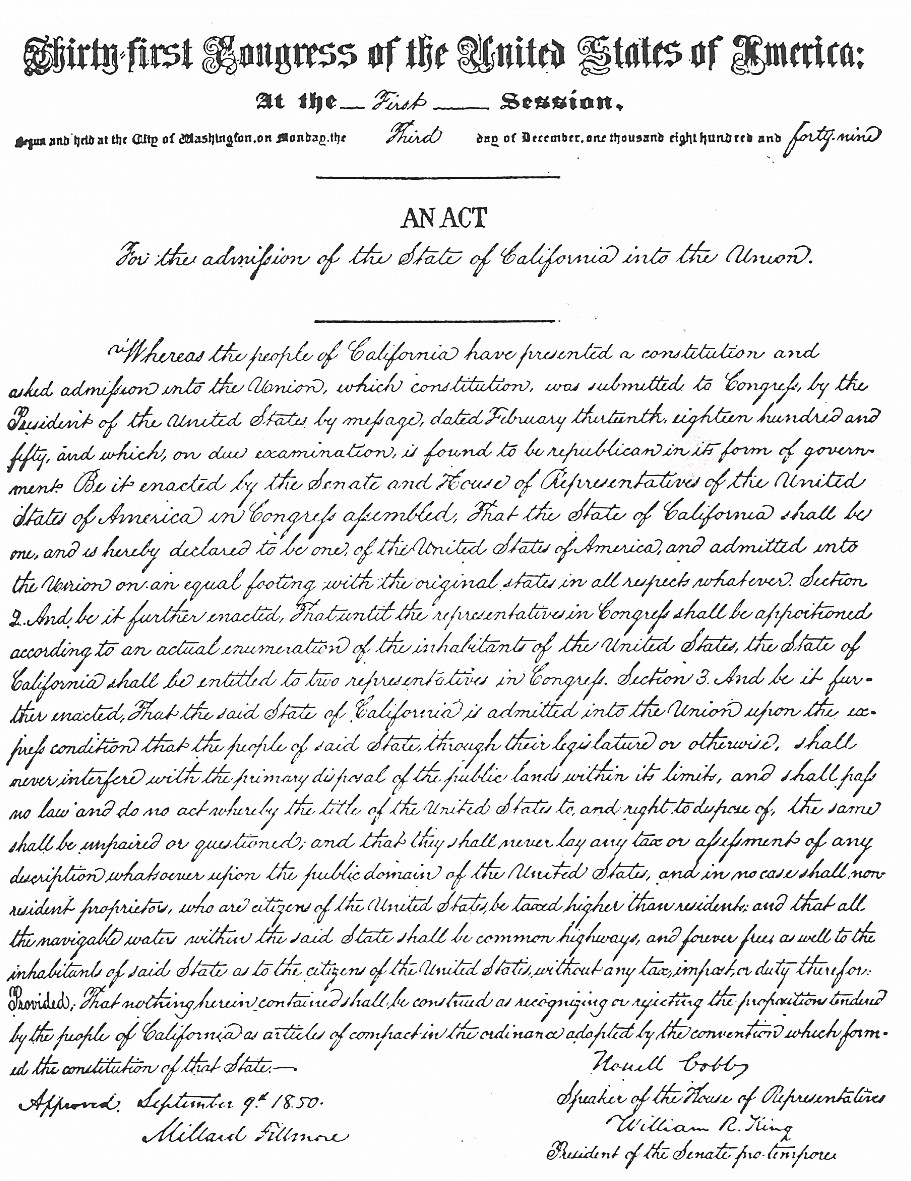 Thirty-first Congress of the United States of America:
At the First Session,
Begun and held at the City of Washington, on Monday, the Third day of December, one thousand eight hundred and forty-nine
AN ACT
For the admission of the State of California into the Union.
Whereas the people of California have presented a constitution and
asked admission into the Union, which constitution, was submitted to Congress, by the
President of the United States by message, dated February thirteenth, eighteen hundred and
fifty, and which, on due examination, is found to be republican in its form of govern-
ment: Be it enacted by the Senate and House of Representatives of the United
States of America in Congress assembled, That the State of California shall be
one, and is hereby declared to be one, of the United States of America, and admitted into
the Union on an equal footing with the original states in all respects whatever. Section
2. And, be it further enacted, That until the representatives in Congress shall be appotioned
according to an actual enumeration of the inhabitants of the United States, the State of
California shall be entitled to two representatives in Congress. Section 3. And be it fur-
ther enacted, That the said State of California is admitted into the Union upon the ex-
press condition that the people of said State, through their legislature or otherwise, shall
never interfere with the primary disposal of the public lands within its limits, and shall pass
no law and do no act whereby the title of the United States to, and right to dispose of, the same
shall be impaired or questioned; and that they shall never lay any tax or assessment of any
description whatsoever upon the public domain of the United States, and in no case shall non-
resident proprietors, who are citizens of the United States, be taxed higher than residents; and that all
the navigable waters within the said State shall be common highways, and forever free, as well to the
inhabitants of said State as to the citizens of the United States, without any tax, impost, or duty therefor:
Provided, That nothing herein contained shall be construed as recognizing or rejecting the propositions tendered
by the people of California as articles of compact in the ordinance adopted by the convention which form-
ed the constitution of that State.—
Howell Cobb
Approved, September 9th 1850.
Speaker of the House of Representatives
Millard Fillmore
William R. King
President of the Senate pro-tempore